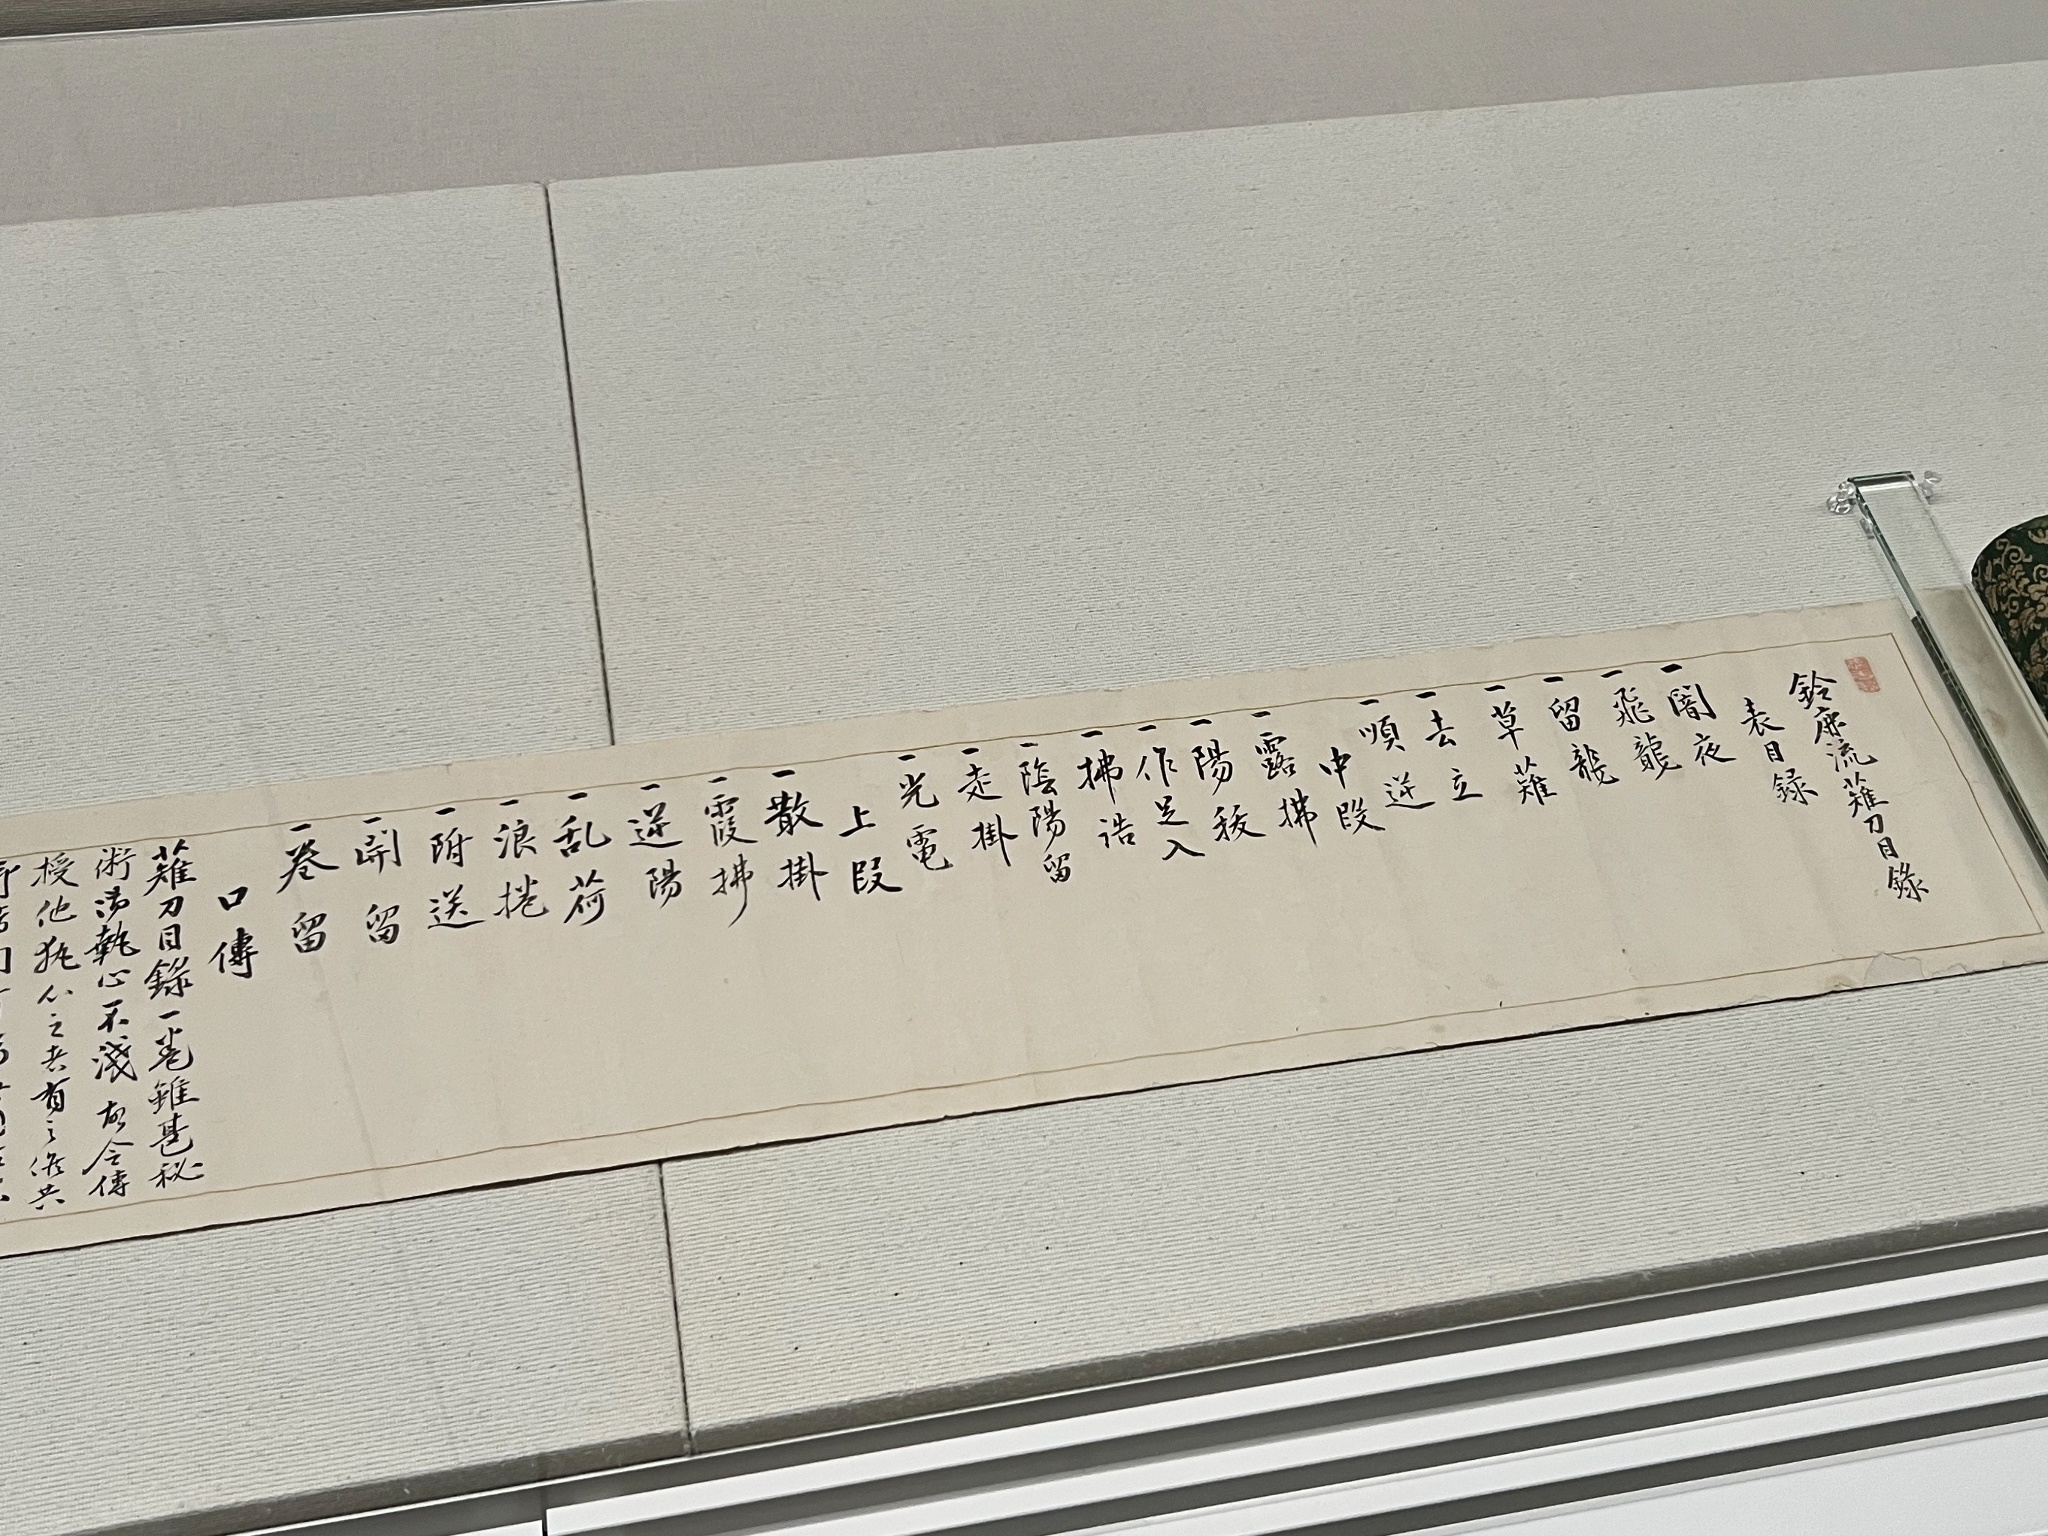 鈴鹿流薙刀目錄
表目録
一闇夜
一飛龍
一留龍
一草薙
一去立
一順逆
中段
一露拂
一陽
一作足入
一拂詰
一陰陽留
一走掛
一光電
上段
一散掛
一霞拂
一逆陽
一乱荷
一浪捲
一附送
一開留
一巻留
口傳
薙刀目錄一卷雖甚秘
術御執心不淺故今傳
授他執心之者有之候共